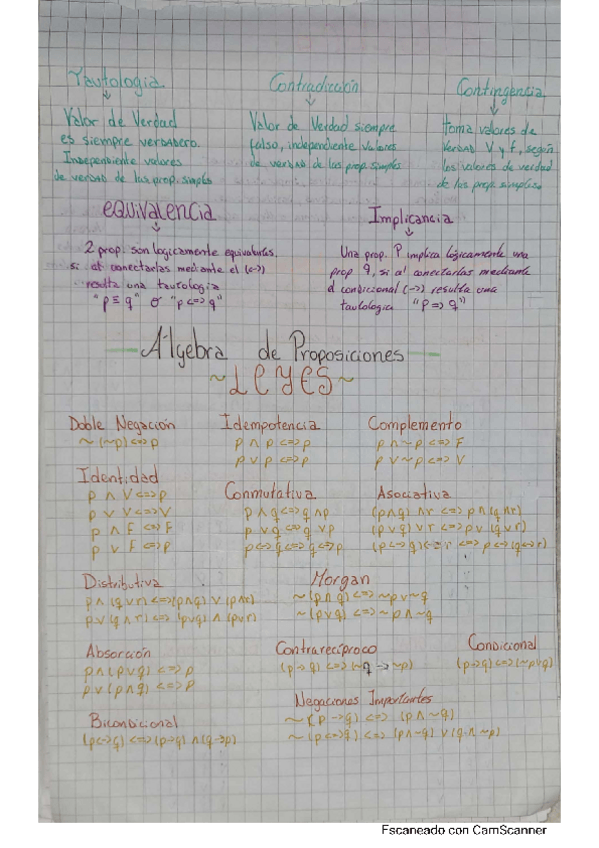 Tautología
Valor de Verdad
es siempre verdadero.
Independiente valores
de verdad de las prop. simples
Contradicción
Valor de Verdad siempre
falso, independiente valores
de verdad de las prop. simples
Contingencia
toma valores de
verdad V y F, según
los valores de verdad
de las prop. simples
equivalencia
2 prop. son logicamente equivalentes,
si al conectarlas mediante el (<->)
resulta una tautología
"p ≡ q" o "p <=> q"
Implicancia
Una prop. P implica lógicamente una
prop q, si al conectarlas mediante
el condicional (->) resulta una
tautologia "p => q"
Álgebra de Proposiciones
~ LEYES ~
Doble Negación
~ (~p) <=> p
Idempotencia
p ∧ p <=> p
p ∨ p <=> p
Complemento
p ∧ ~p <=> F
p ∨ ~p <=> V
Identidad
p ∧ V <=> p
p ∨ V <=> V
p ∧ F <=> F
p ∨ F <=> p
Conmutativa
p ∧ q <=> q ∧ p
p ∨ q <=> q ∨ p
p <-> q <=> q <-> p
Asociativa
(p ∧ q) ∧ r <=> p ∧ (q ∧ r)
(p ∨ q) ∨ r <=> p ∨ (q ∨ r)
(p <-> q) <-> r <=> p <-> (q <-> r)
Distributiva
p ∧ (q ∨ r) <=> (p ∧ q) ∨ (p ∧ r)
p ∨ (q ∧ r) <=> (p ∨ q) ∧ (p ∨ r)
Morgan
~ (p ∧ q) <=> ~p ∨ ~q
~ (p ∨ q) <=> ~p ∧ ~q
Absorción
p ∧ (p ∨ q) <=> p
p ∨ (p ∧ q) <=> p
Contrarecíproco
(p -> q) <=> (~q -> ~p)
Condicional
(p -> q) <=> (~p ∨ q)
Bicondicional
(p <-> q) <=> (p -> q) ∧ (q -> p)
Negaciones Importantes
~ (p -> q) <=> (p ∧ ~q)
~ (p <-> q) <=> (p ∧ ~q) ∨ (q ∧ ~p)
Escaneado con CamScanner